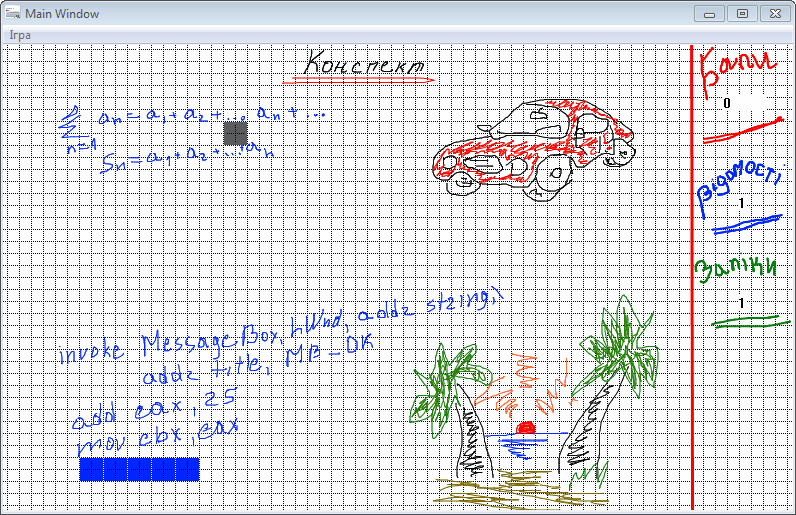 Main Window
Ігра
Конспект
n=1
aₙ = a₁ + a₂ + ..., aₙ + ...
Sₙ = a₁ + a₂ + ..., aₙ
invoke MessageBox, hWnd, addr string,\
addr title, MB-OK
add eax, 25
mov ebx, eax
Бали
0
Відомості
1
Заліки
1